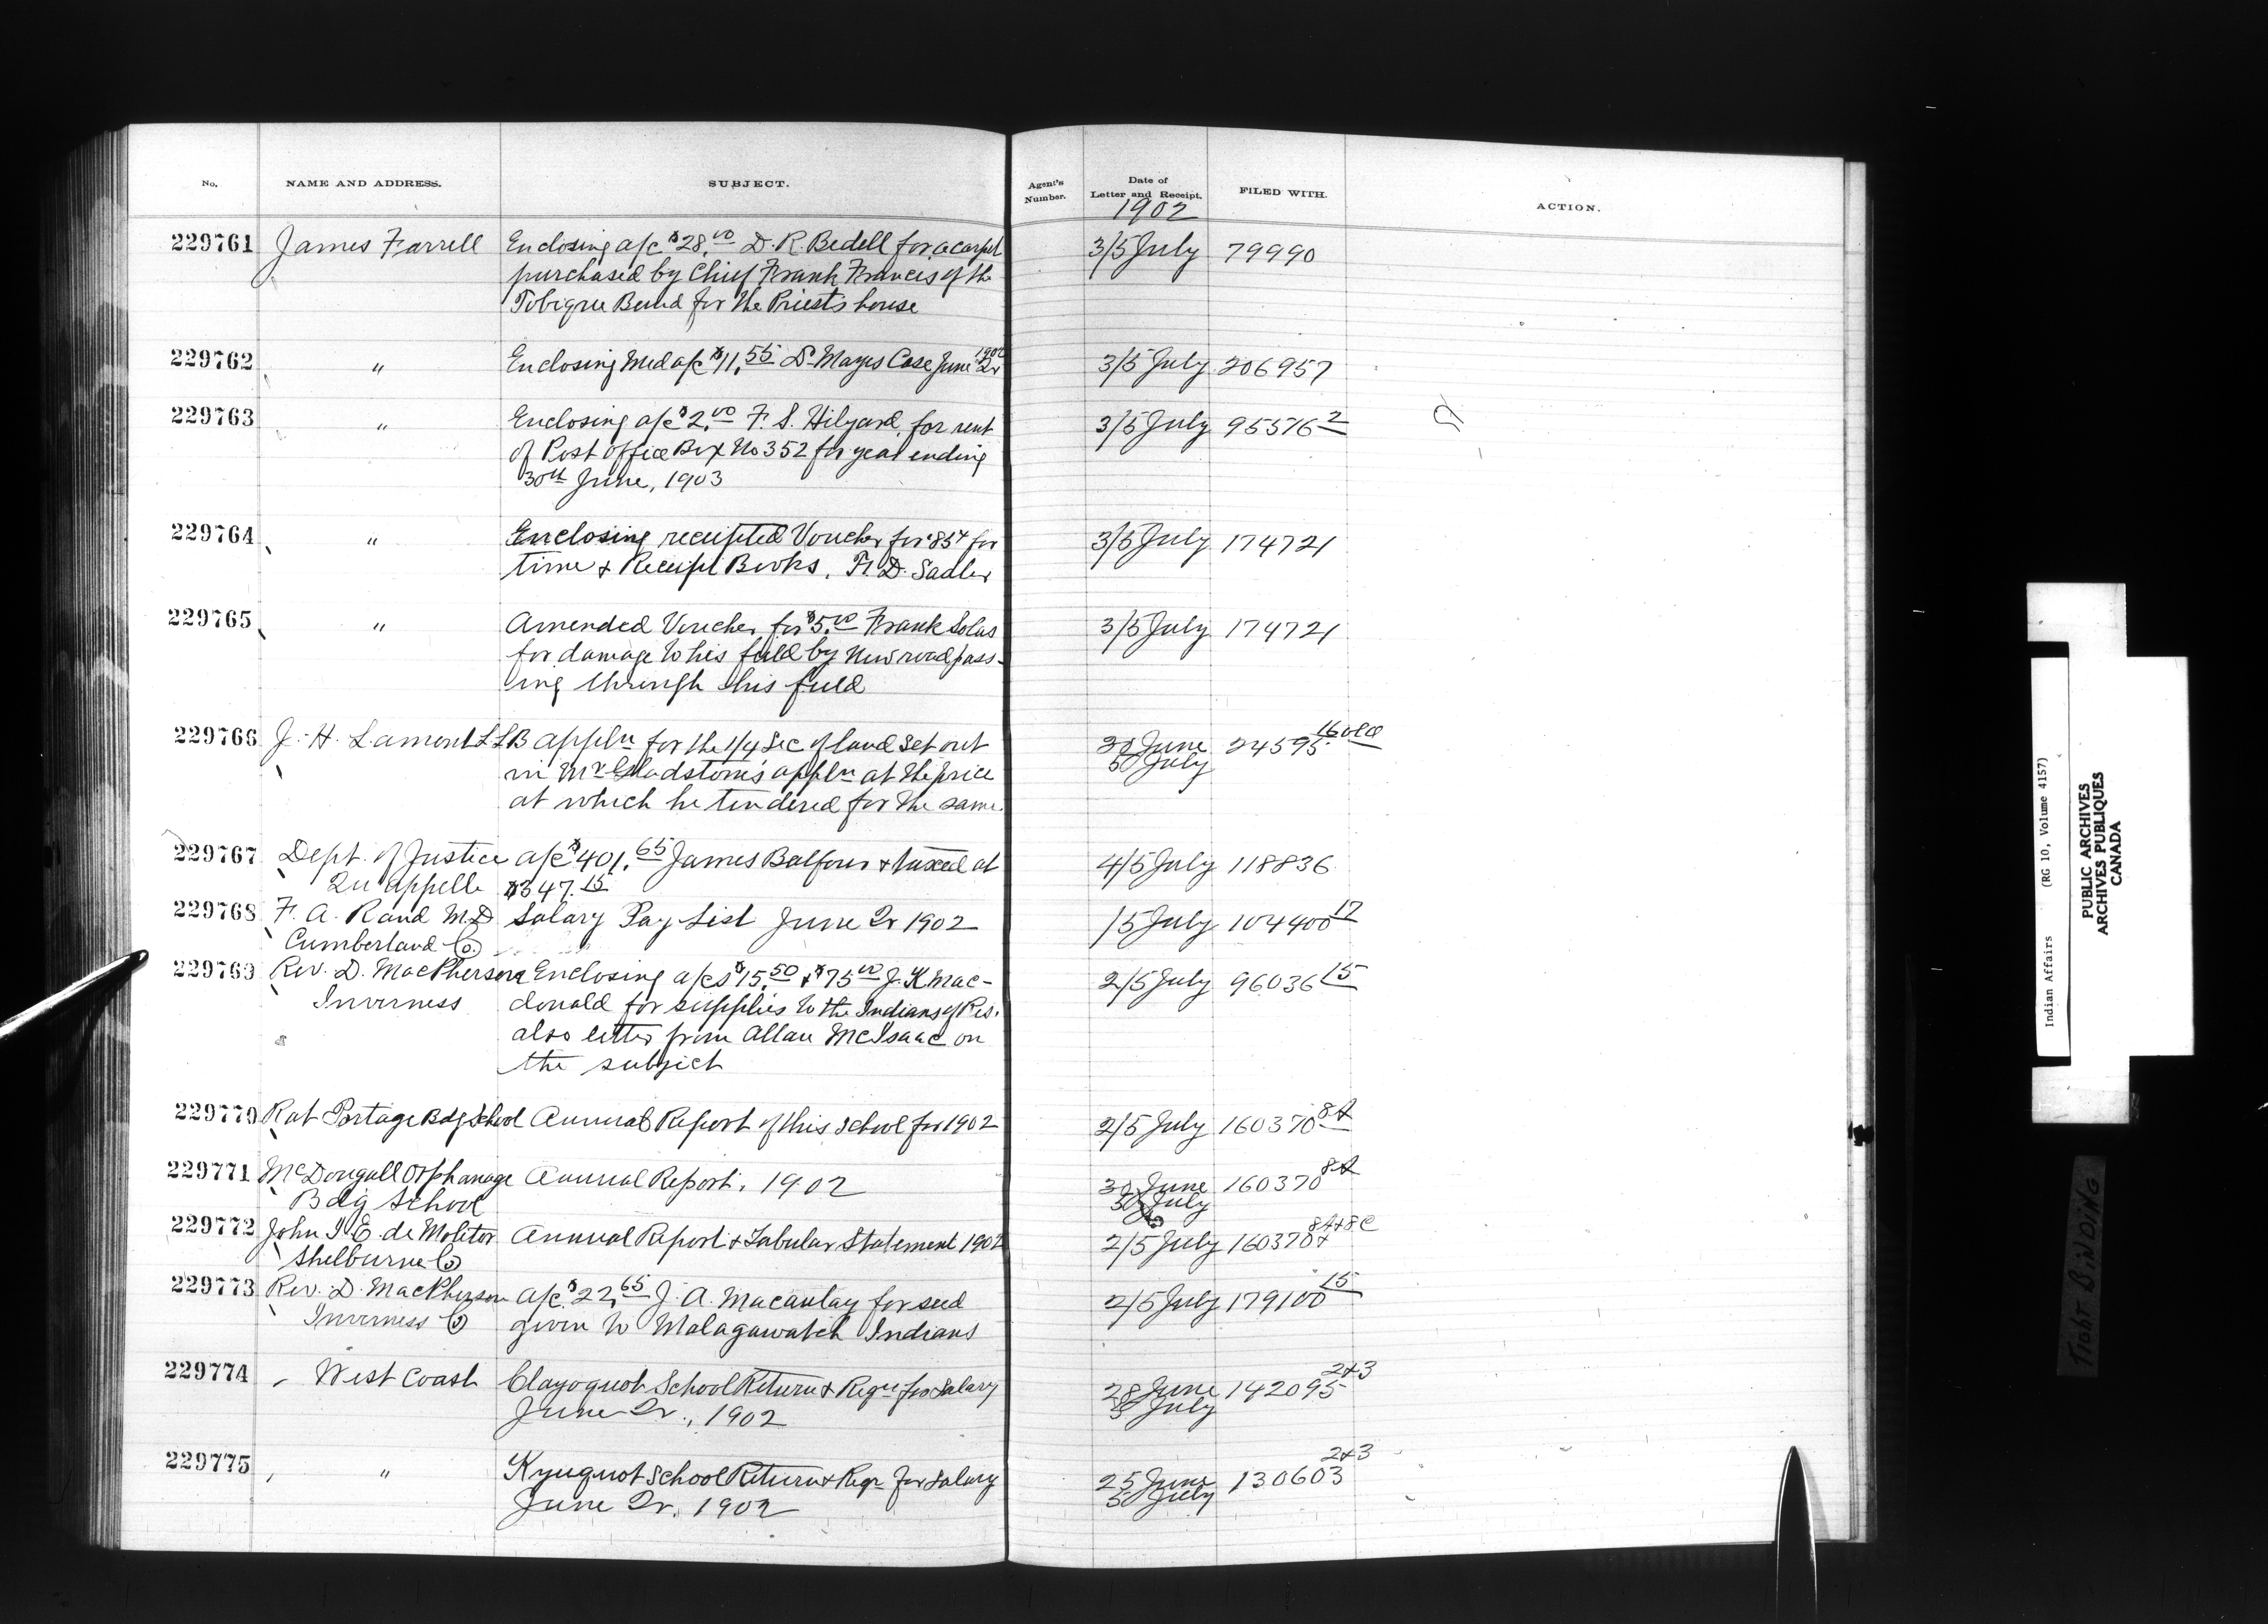 No. NAME AND ADDRESS. SUBJECT. Agent's Number. Date of Letter and Receipt. FILED WITH. ACTION.
1902
229761 James Farrell Enclosing a/c $28.00 D. R. Bedell for a carpet 3/5 July 79990
purchased by Chief Frank Francis of the
Tobique Band for the Priests house
229762 " Enclosing Med a/c $11.55 Dr Mayes Case June Qr 1902 3/5 July 206957
229763 " Enclosing a/c $2.00 F. S. Hilyard for rent 3/5 July 95576 2
of Post office Box No 352 for year ending
30th June, 1903
229764 " Enclosing receipted Voucher for 85¢ for 3/5 July 174721
time & Receipt Books, H. D. Sadler
229765 " Amended Voucher for $5.00 Frank Solas 3/5 July 174721
for damage to his field by New road pass-
ing through this field
229766 J. H. Lamont LLB appln for the 1/4 Sec of land set out 30 June 24595
in Mr Gladstone's appln at the price 5 July
at which he tendered for the same.
229767 Dept. of Justice a/c $401.65 James Balfour & taxed at 4/5 July 118836
Qu'appelle $347.15
229768 F. A. Rand M.D Salary Pay List June Qr 1902 /5 July 104400 17
Cumberland Co.
229769 Rev. D. MacPherson Enclosing a/cs $15.50 & $75.00 J. K. Mac- 2/5 July 96036 15
Inverness donald for supplies to the Indians of Res.
also letter from Allan McIsaac on
the subject
229770 Rat Portage Bdg School Annual Report of this School for 1902 2/5 July 160370 8A
229771 McDougall Orphanage Annual Report, 1902 30 June 160370 8A
Bdg School 5 July
229772 John J. E. de Molitor Annual Report & Tabular Statement 1902 2/5 July 160370 8A+8C
Shelburne Co
229773 Rev. D. MacPherson a/c $22.65 J. A. Macaulay for seed 2/5 July 179100 15
Inverness Co given to Malagawatch Indians
229774 West Coast Clayoquot School Return & Reqn for Salary 28 June 142095 2+3
June Qr., 1902 5 July
229775 " Kyuquot School Return & Reqn for Salary 25 June 130603 2+3
June Qr. 1902 5 July
Indian Affairs (RG 10, Volume 4157)
PUBLIC ARCHIVES
ARCHIVES PUBLIQUES
CANADA
TIGHT BINDING